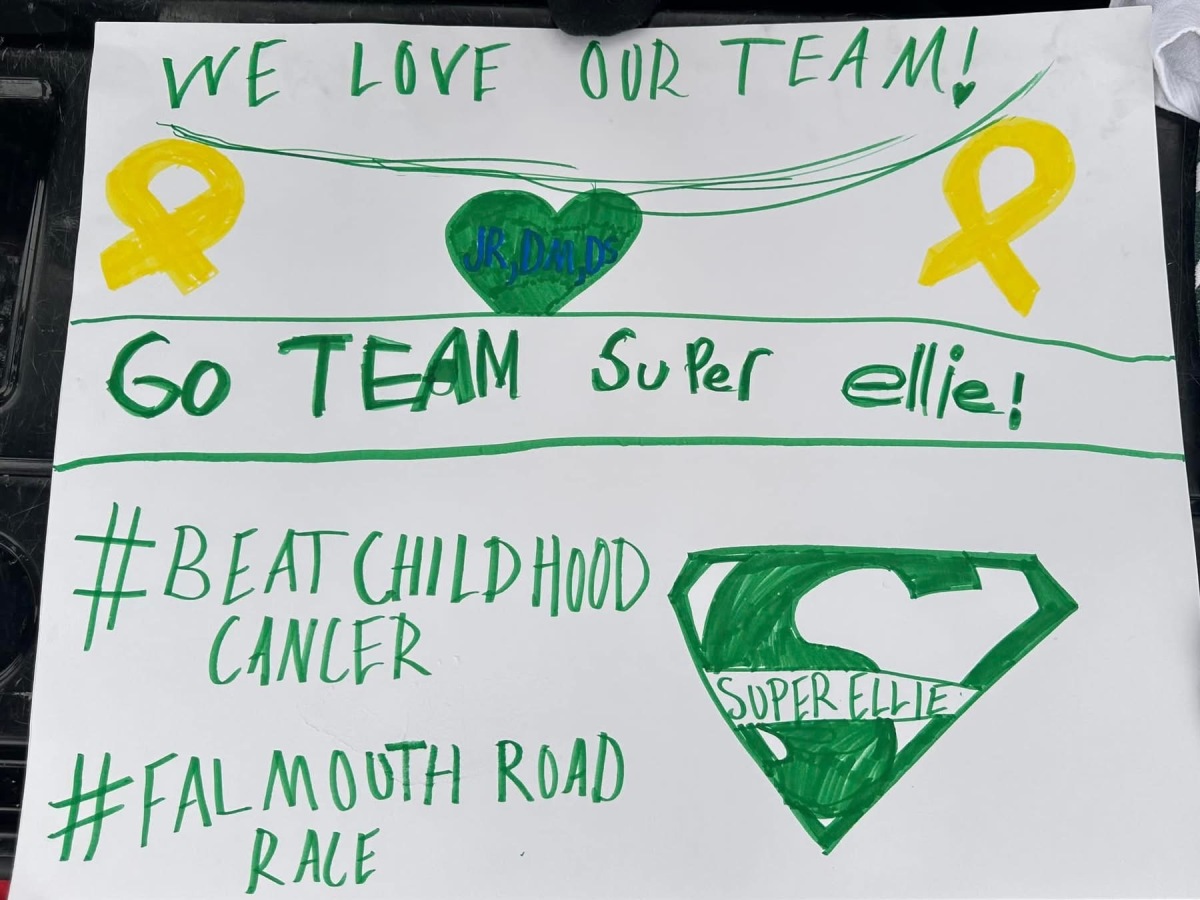 WE LOVE OUR TEAM!
JR,DM,DS
GO TEAM SuPer ellie!
#BEATCHILDHOOD
CANCER
SUPER ELLIE
#FALMOUTH ROAD
RACE